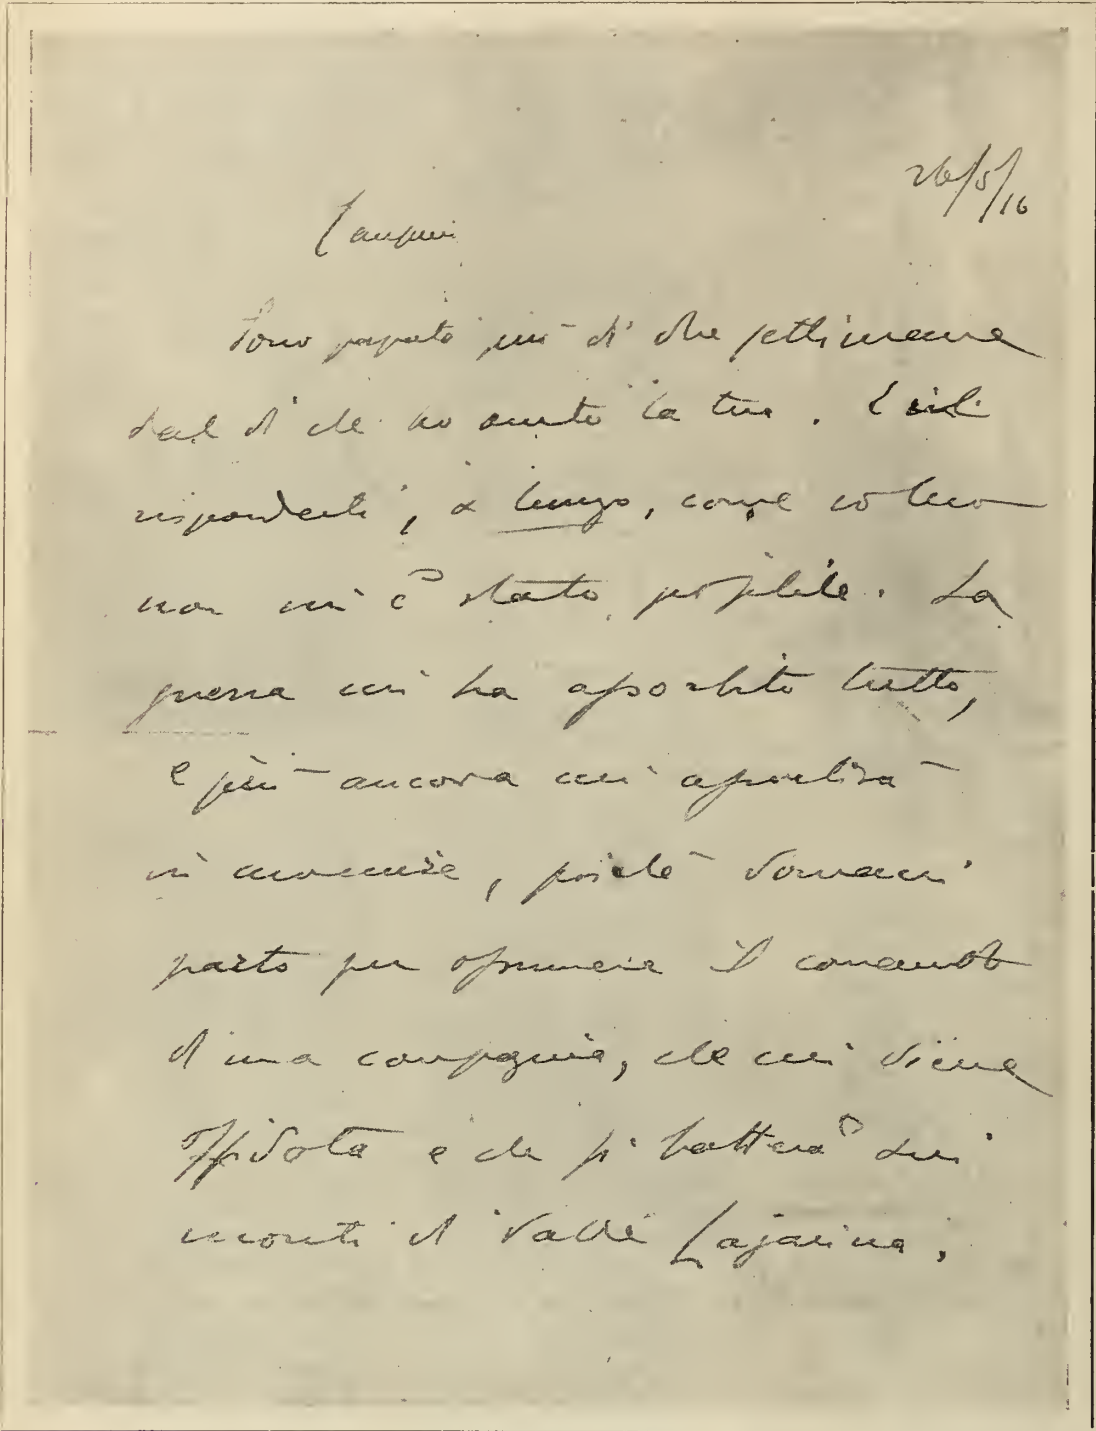 26/5/16
Sono passate più di due settimane
dal dì che ho avuto la tua. E sì che
risponderti, a lungo, come volevo
non mi è stato possibile. La
guerra mi ha assorbito tutto,
e più ancora mi assorbirà
in avvenire, poichè domani
parto per assumere il comando
di una compagnia, che mi viene
affidata e che si batterà sui
monti di Valle Lagarina,